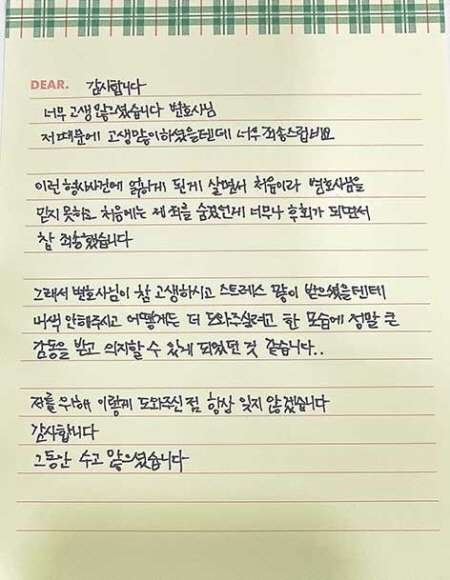 DEAR. 감사합니다
너무 고생 많으셨습니다 변호사님
저때문에 고생많이하셨을텐데 너무 죄송스럽네요
이런 형사사건에 얽하게 된게 살면서 처음이라 변호사님을
믿지 못하고 처음에는 제 죄를 숨겼던게 너무나 후회가 되면서
참 죄송했습니다
그래서 변호사님이 참 고생하시고 스트레스 많이 받으셨을텐데
내색 안해주시고 어떻게든 더 도와주실려고 한 모습에 정말 큰
감동을 받고 의지할 수 있게 되었던 것 같습니다..
저를 위해 이렇게 도와주신 점 항상 잊지 않겠습니다
감사합니다
그동안 수고 많으셨습니다